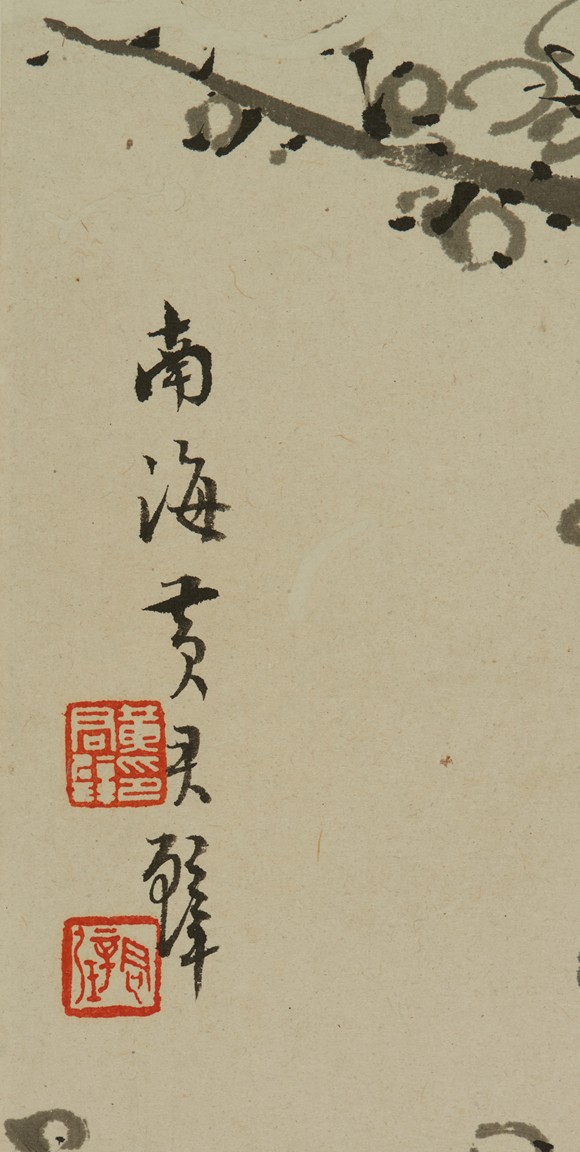 南海黄君璧
黄君璧印
君璧